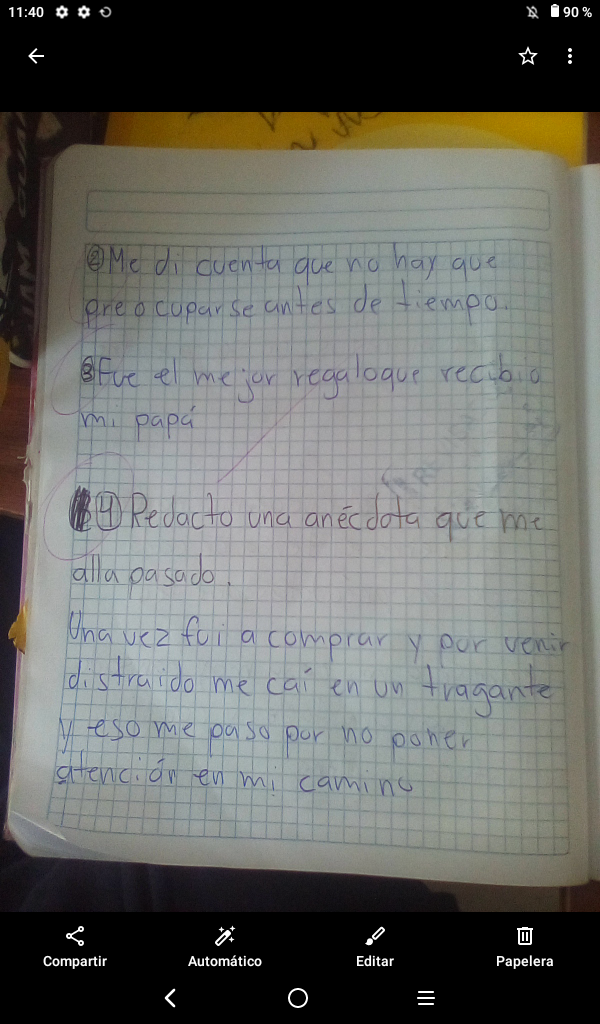 11:40
90 %
② Me di cuenta que no hay que
preocuparse antes de tiempo.
③ Fue el mejor regalo que recibio
mi papá
④ Redacto una anécdota que me
alla pasado.
Una vez fui a comprar y por venir
distraido me caí en un tragante
y eso me paso por no poner
atención en mi camino
Compartir
Automático
Editar
Papelera